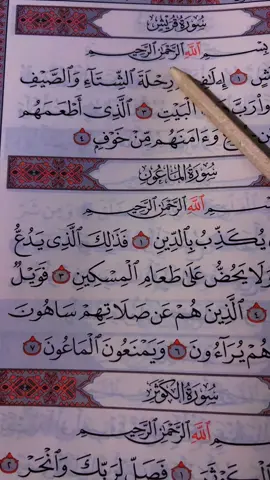 سُورَةُ قُرَيْشٍ
بِسْمِ اللَّهِ الرَّحْمَٰنِ الرَّحِيمِ
١ إِۦلَٰفِهِمْ رِحْلَةَ الشِّتَاءِ وَالصَّيْفِ
الْبَيْتِ ٣ الَّذِي أَطْعَمَهُم
وَءَامَنَهُم مِّنْ خَوْفٍ ٤
سُورَةُ الْمَاعُونِ
اللَّهِ الرَّحْمَٰنِ الرَّحِيمِ
يُكَذِّبُ بِالدِّينِ ١ فَذَٰلِكَ الَّذِي يَدُعُّ
وَلَا يَحُضُّ عَلَىٰ طَعَامِ الْمِسْكِينِ ٣ فَوَيْلٌ
٤ الَّذِينَ هُمْ عَن صَلَاتِهِمْ سَاهُونَ
هُمْ يُرَاءُونَ ٦ وَيَمْنَعُونَ الْمَاعُونَ ٧
سُورَةُ الْكَوْثَرِ
اللَّهِ الرَّحْمَٰنِ الرَّحِيمِ
١ فَصَلِّ لِرَبِّكَ وَانْحَرْ ٢